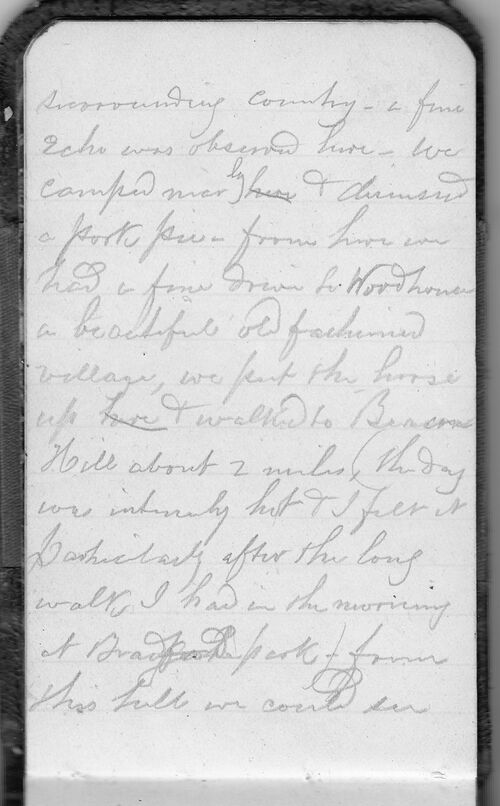 surrounding country - a fine
Echo was observed here - We
camped near by here & discussed
a pork pie - from here we
had a fine drive to Woodhouse
a beautiful old fashioned
village, we put the horse
up here & walked to Beacon
Hill about 2 miles, (the day
was intensely hot & I felt it
particularly after the long
walk I had in the morning
at Brad park) - from
this hill we could see